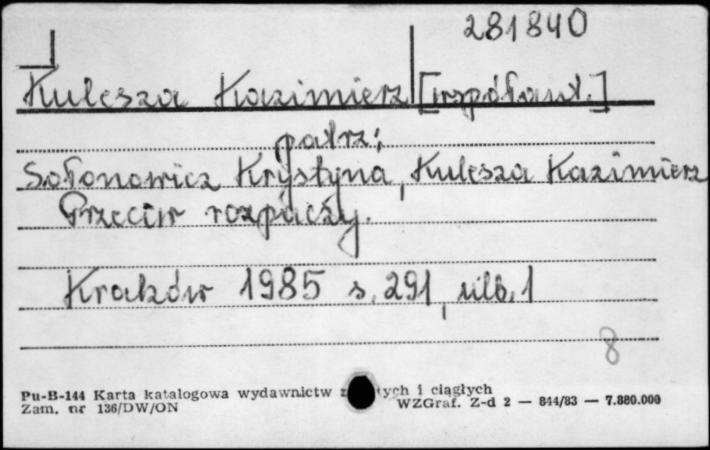 281840
Kulesza Kazimierz [współaut.]
patrz:
Sołonowicz Krystyna, Kulesza Kazimierz
Przeciw rozpaczy.
Kraków 1985 s. 291, nlb. 1
8
Pu-B-144 Karta katalogowa wydawnictw z ych i ciągłych
Zam. nr 136/DW/ON WZGraf. Z-d 2 — 844/83 — 7.880.000